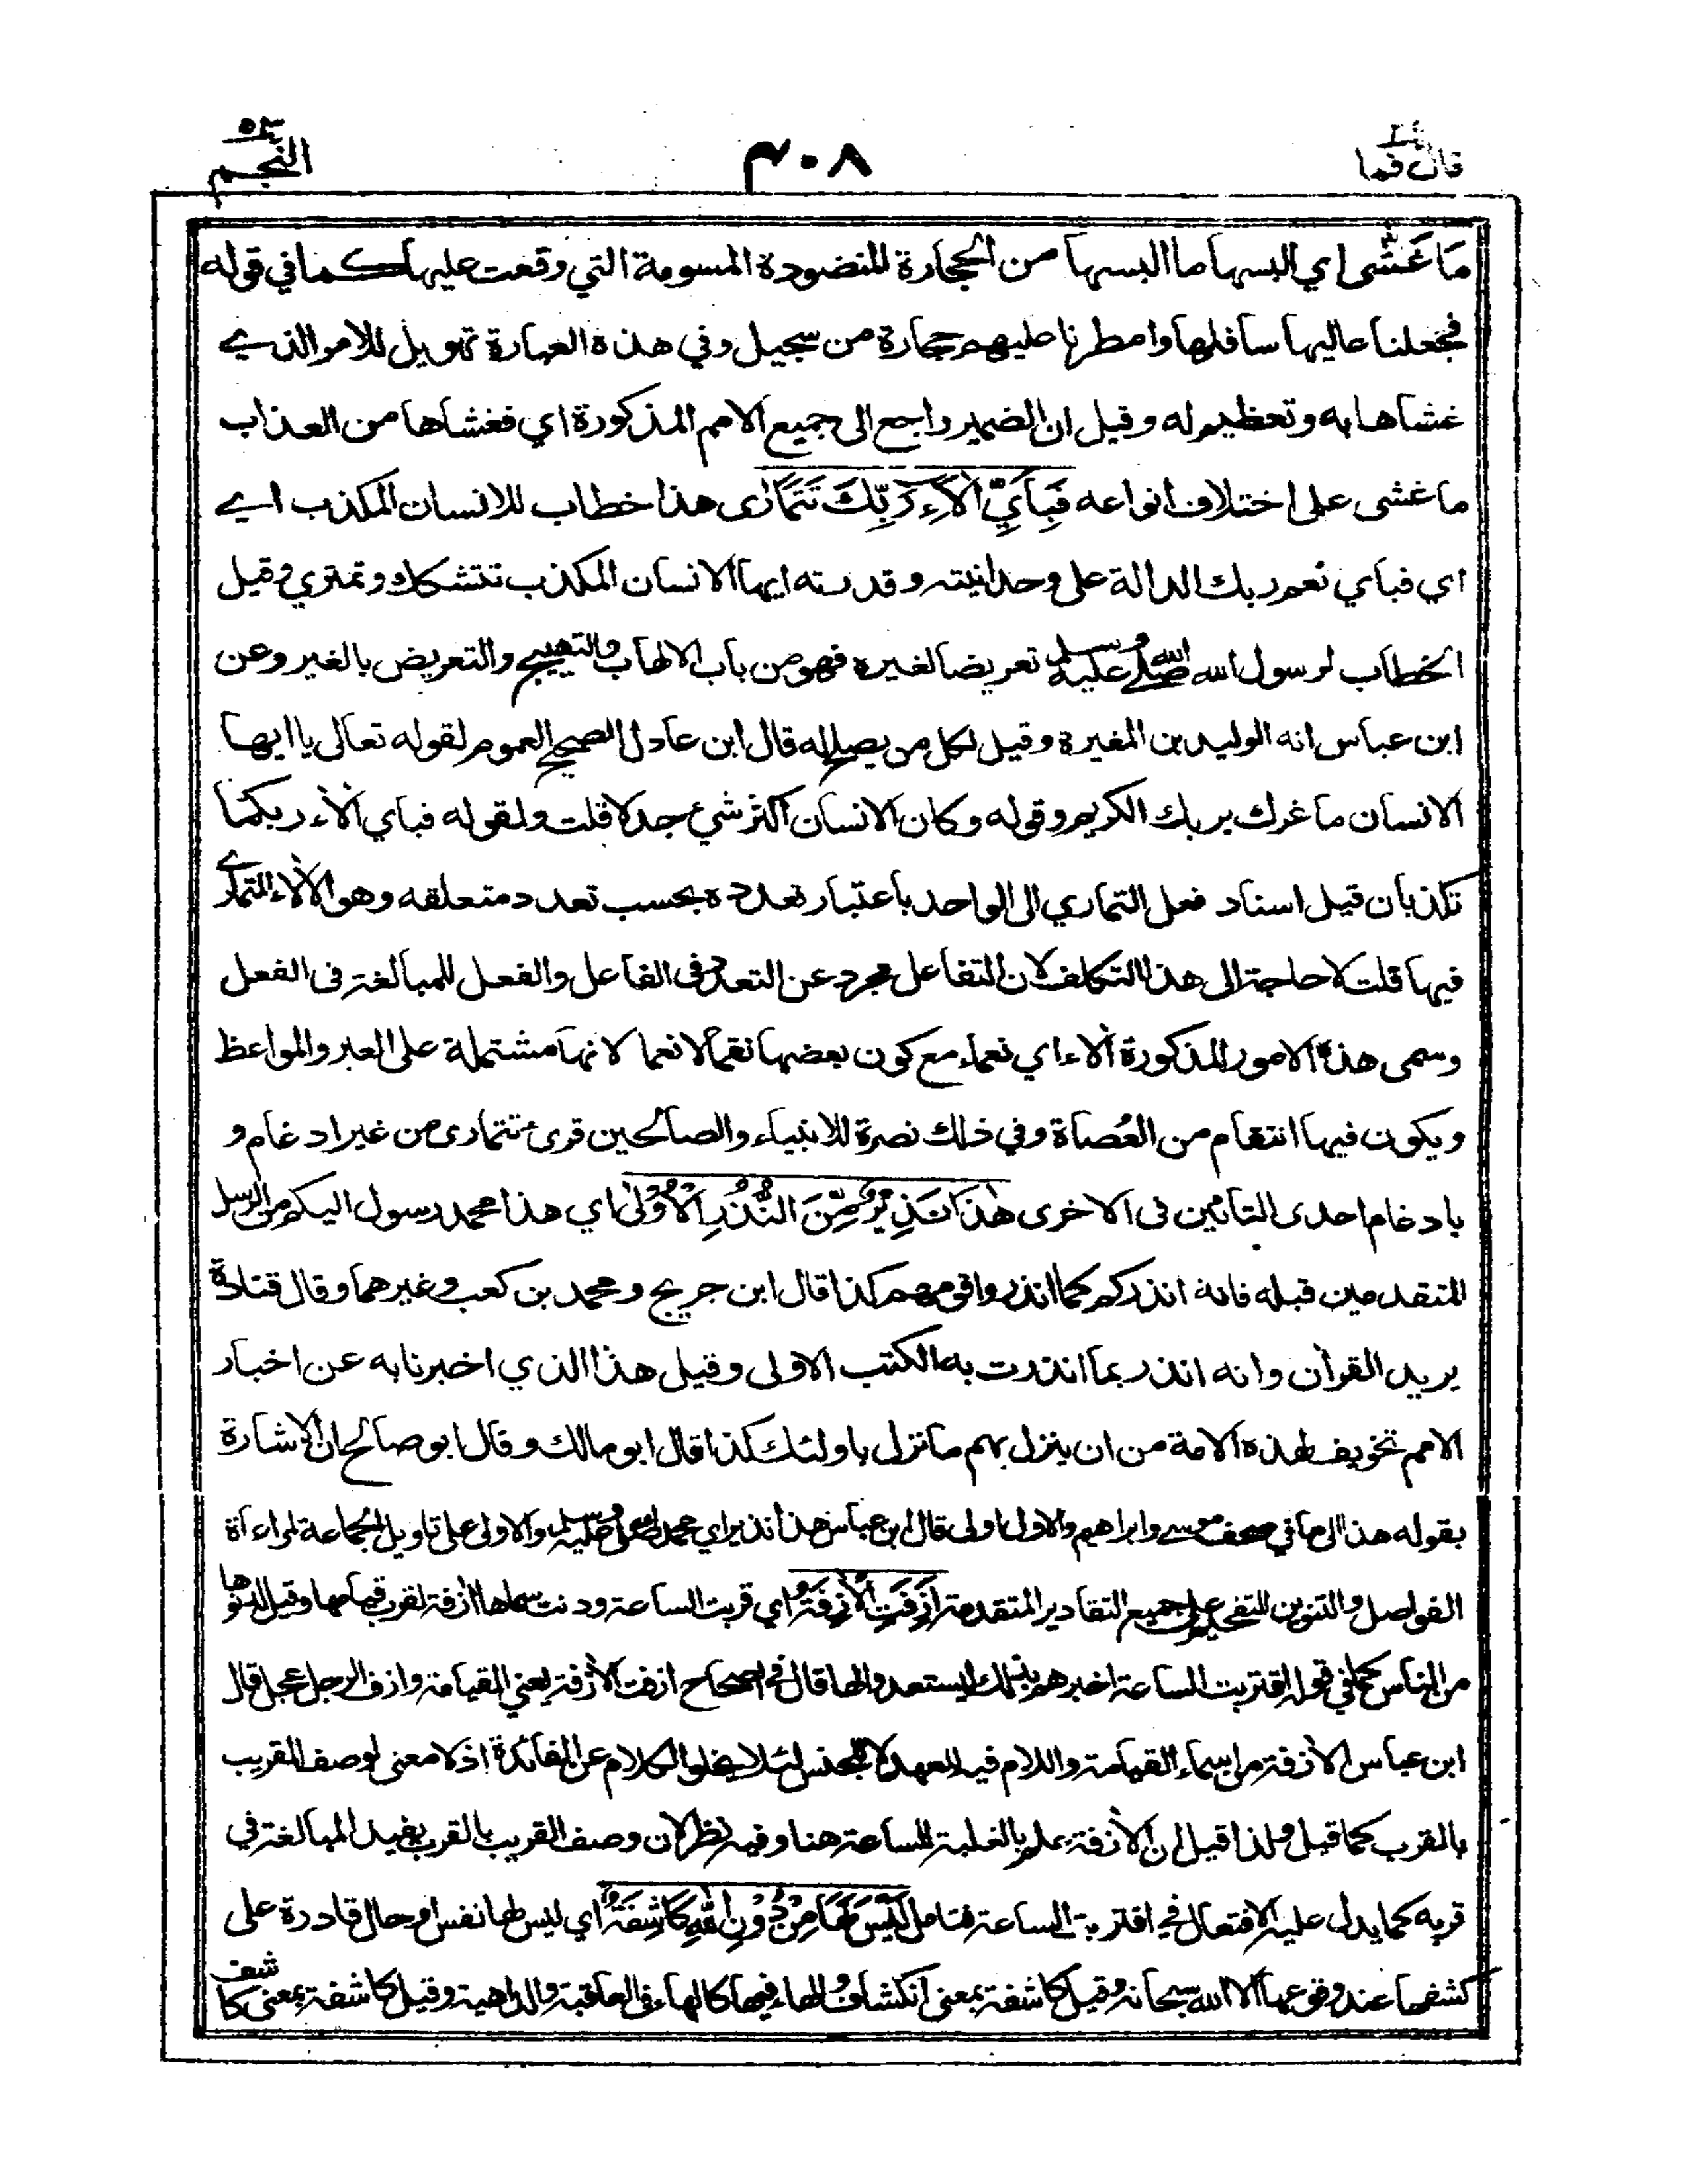 قال فما ٢٧
٣٠٨
النجم ٥٣
مَا غَشّٰى اي البسها ما البسها من الحجارة المنضودة المسومة التي وقعت عليها كما في قوله
فجعلنا عاليها سافلها وامطرنا عليهم حجارة من سجيل وفي هذه العبارة تهويل للامر الذي
غشاها به وتعظيم له وقيل ان الضمير راجع الى جميع الامم المذكورة اي فغشاها من العذاب
ما غشى على اختلاف انواعه فَبِاَيِّ اٰلَاۤءِ رَبِّكَ تَتَمَارٰى هذا خطاب للانسان المكذب اي
اي فباي نعم ربك الدالة على وحدانيته وقدرته ايها الانسان المكذب تتشكك وتمتري وقيل
الخطاب لرسول الله صلى الله عليه وسلم تعريضا لغيره فهو من باب الالهاب والتهييج والتعريض بالغير وعن
ابن عباس انه الوليد بن المغيرة وقيل لكل من يصلح له قال ابن عادل الصحيح العموم لقوله تعالى يا ايها
الانسان ما غرك بربك الكريم وقوله وكان الانسان اكثر شيء جدلا قلت ولقوله فباي الاٰء ربكما
تكذبان قيل اسناد فعل التماري الى الواحد باعتبار تعدده بحسب تعدد متعلقه وهو الاٰلاء المتمارى
فيها قلت لا حاجة الى هذا التكلف لان التفاعل مجرد عن التعدد في الفاعل والفعل للمبالغة فى الفعل
وسمى هذه الامور المذكورة اٰلاء اي نعماء مع كون بعضها نقما لا نعما لانها مشتملة على العبر والمواعظ
ويكون فيها انتقام من العُصاة وفي ذلك نصرة للانبياء والصالحين قرئ تتمارى من غير ادغام و
بادغام احدى التائين فى الاخرى هٰذَا نَذِيْرٌ مِّنَ النُّذُرِ الْاُوْلٰى اي هذا محمد رسول اليكم من الرسل
المتقدمين قبله فانه انذركم كما انذروا قومهم كذا قال ابن جريج ومحمد بن كعب وغيرهما وقال قتادة
يريد القراٰن وانه انذر بما انذرت به الكتب الاولى وقيل هذا الذي اخبرنا به عن اخبار
الامم تخويف لهذه الامة من ان ينزل بهم ما نزل باولئك كذا قال ابو مالك وقال ابو صالح ان الاشارة
بقوله هذا الى ما في صحف موسى وابراهيم والاول اولى قال ابن عباس هذا نذير اي محمد صلى الله عليه وسلم والاولى على تاويل الجماعة لمراعاة
الفواصل والتنوين للتفخيم على جميع التقادير المتقدمة اَزِفَتِ الْاٰزِفَةُ اي قربت الساعة ودنت سماها اٰزفة لقرب قيامها وقيل لدنوها
من الناس كما في قوله اقتربت الساعة اخبرهم بذلك ليستعدوا لها قال في الصحاح ازفت الاٰزفة يعني القيامة وازف الرجل عجل قال
ابن عباس الاٰزفة من اسماء القيامة واللام فيه للعهد لا للجنس لئلا يخلو الكلام عن الفائدة اذ لا معنى لوصف القريب
بالقرب كما قيل ولذا قيل ان الاٰزفة علم بالغلبة للساعة هنا وفيه نظر لان وصف القريب بالقرب يفيد المبالغة في
قربه كما يدل عليه الافتعال في اقتربت الساعة فتامل لَيْسَ لَهَا مِنْ دُوْنِ اللّٰهِ كَاشِفَةٌ اي ليس لها نفس او حال قادرة على
كشفها عند وقوعها الا الله سبحانه وقيل كاشفة بمعنى انكشاف والهاء فيها كالهاء فى العاقبة والداهية وقيل كاشفة بمعنى كاشف